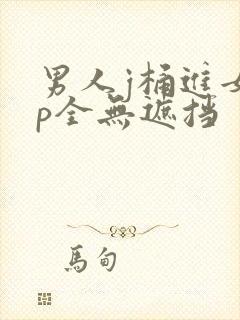 男人j桶进女
p全無遮挡
馬甸